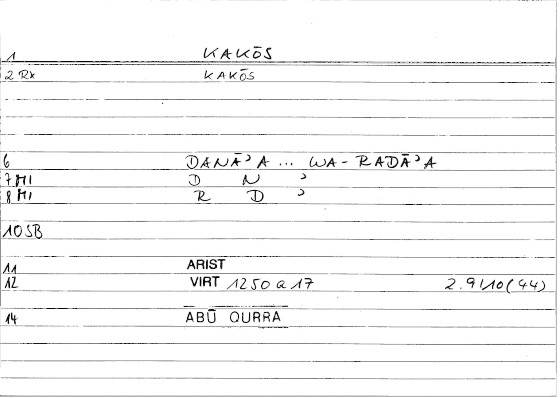 1 KAKŌS
2 RX KAKŌS
6 DANĀʾA ... WA-RADĀʾA
7 MI D N ʾ
8 MI R D ʾ
10 SB
11 ARIST
12 VIRT 1250 a 17 2.9/10 (44)
14 ABŪ QURRA